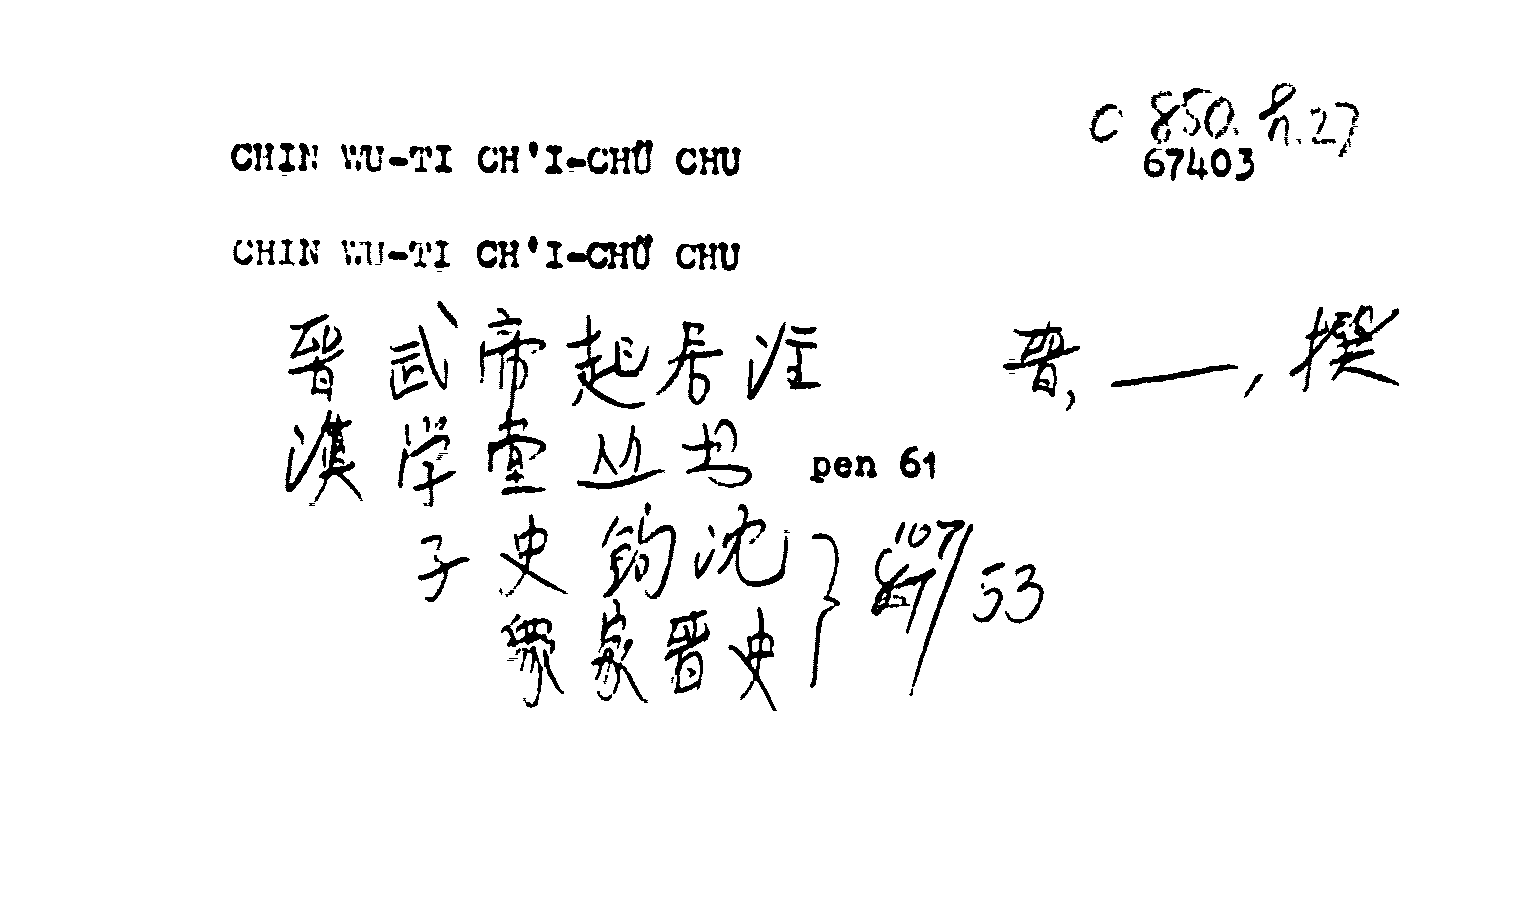 C 850. n. 27
67403
CHIN WU-TI CH'I-CHÜ CHU
CHIN WU-TI CH'I-CHÜ CHU
晋武帝起居注 晋, ——, 撰
漢学堂丛书 pen 61
子史鈎沈
衆家晋史
107/53